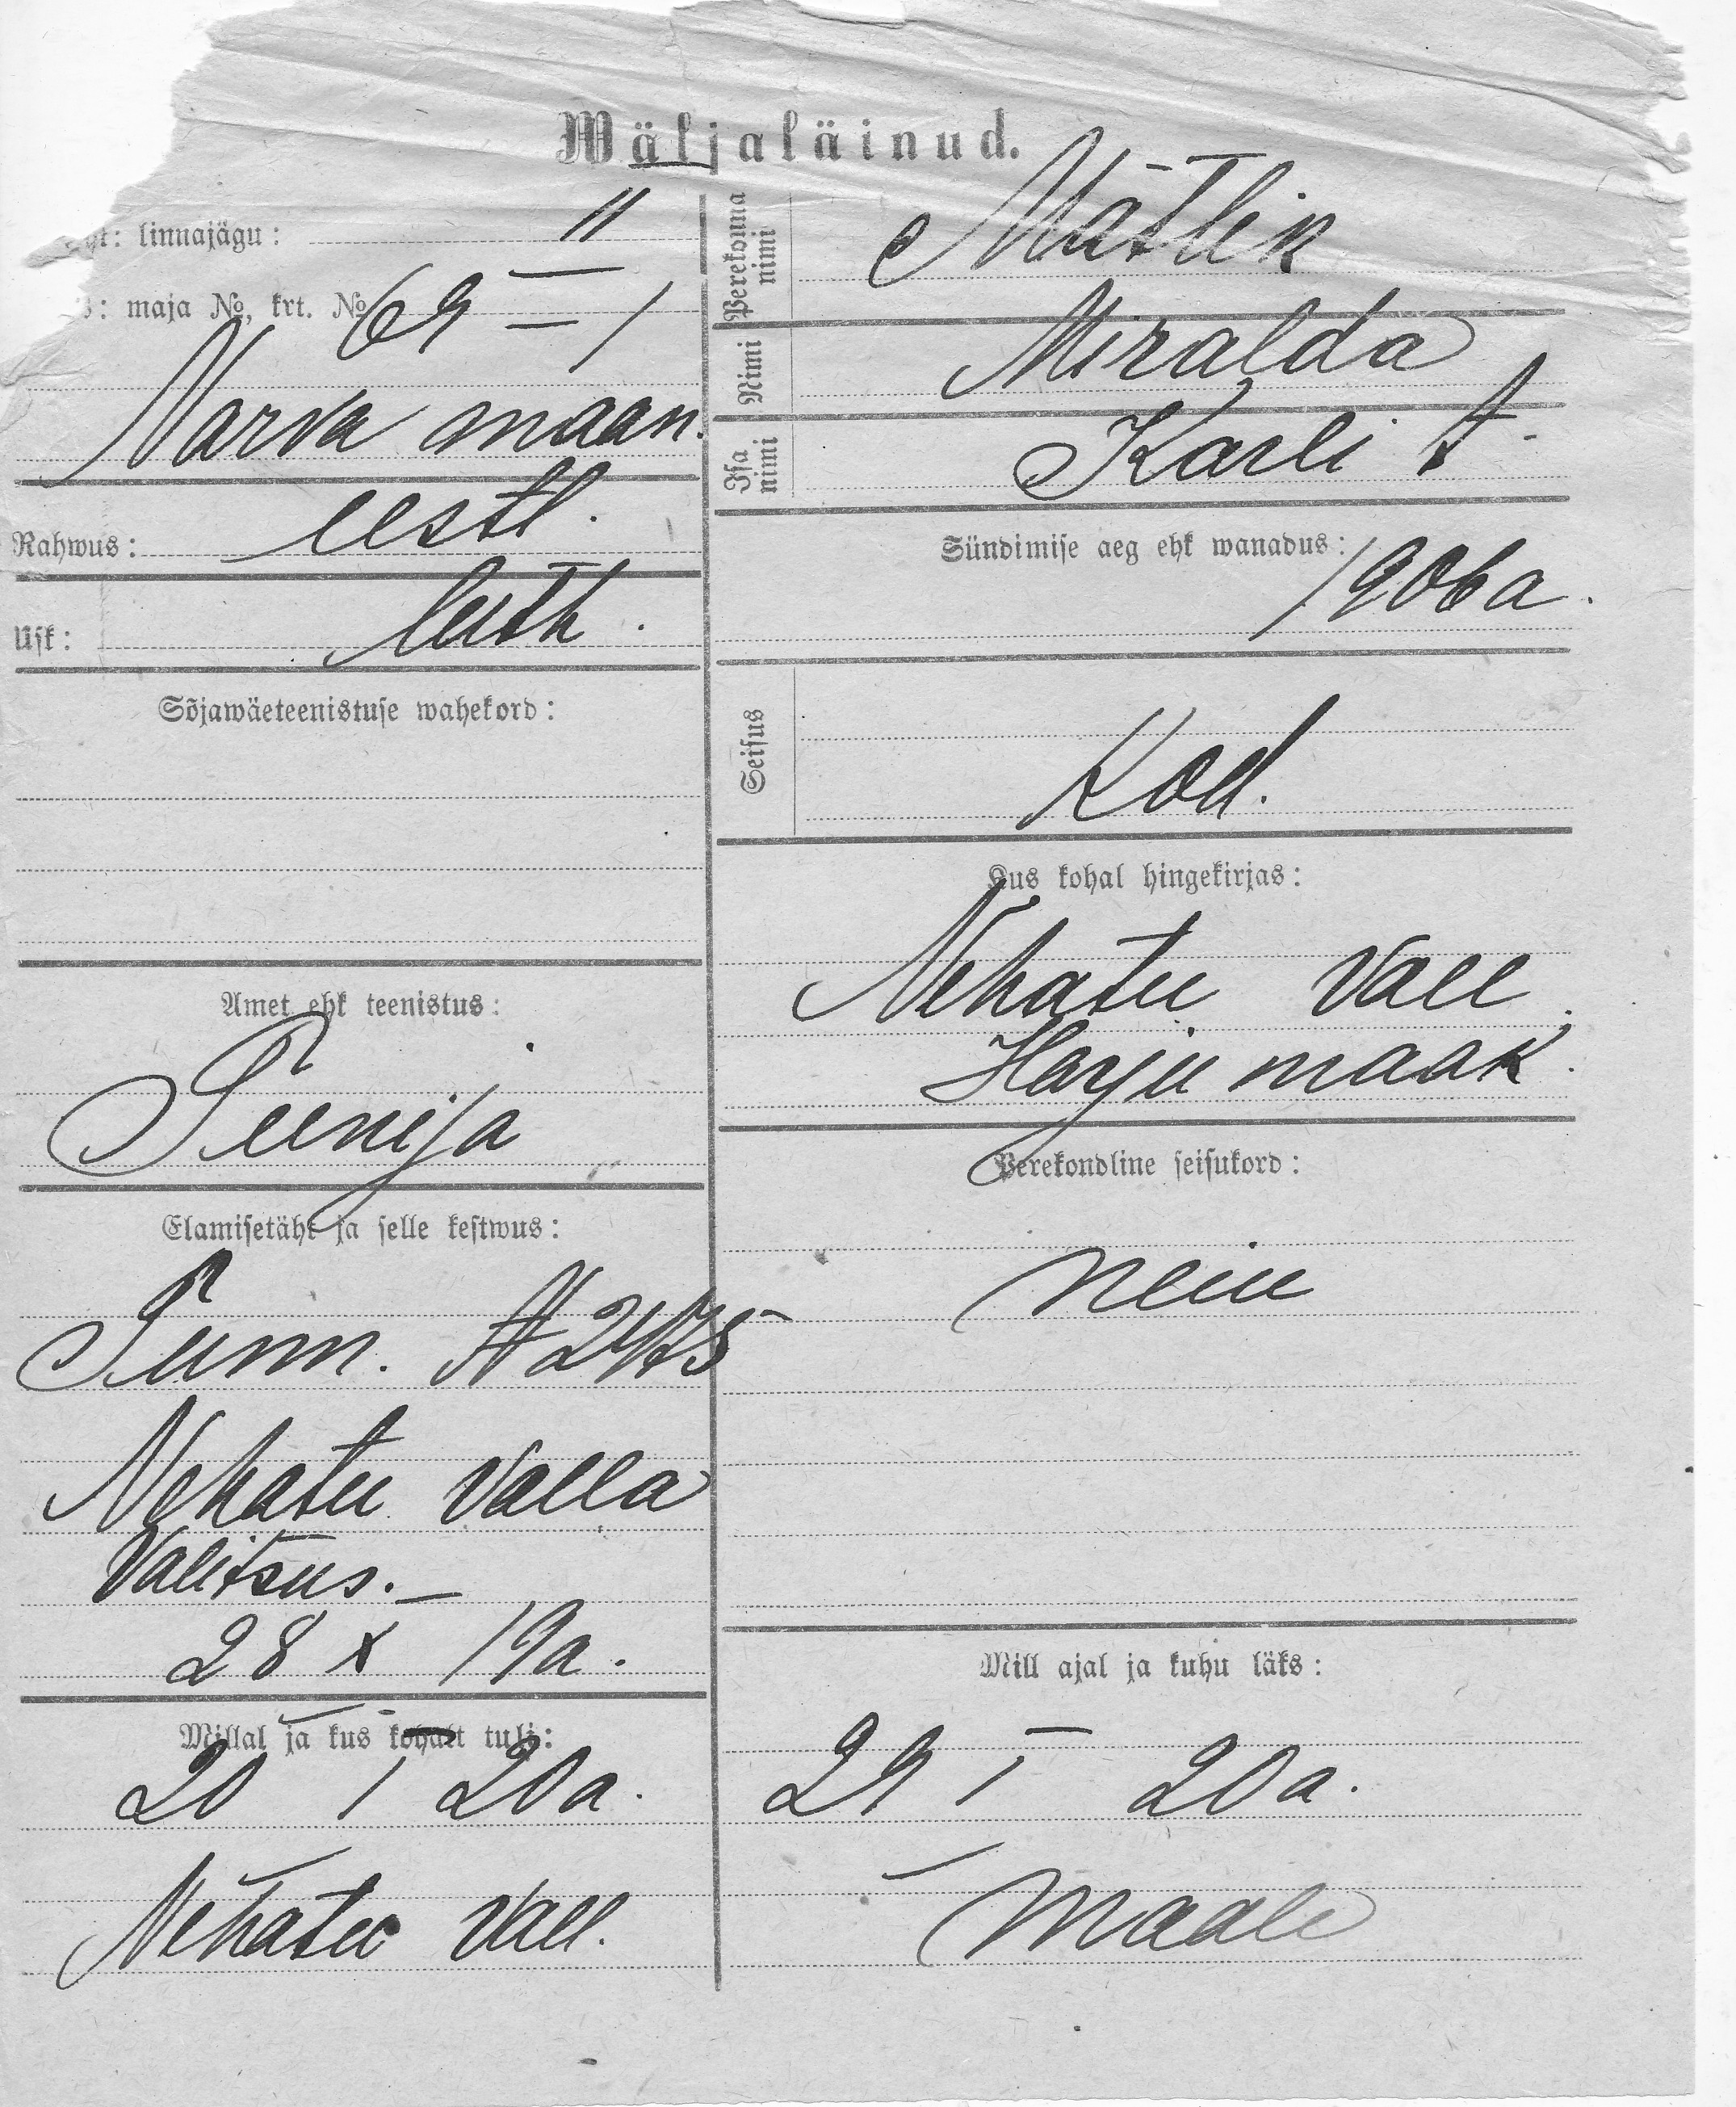 Wäljaläinud.
linnajägu: II
maja №, krt. № 69 — 1
Narva maan.
Rahwus: eestl.
Usk: luth.
Sõjawäeteenistuse wahekord:
Amet ehk teenistus:
Teenija
Elamisetäht ja selle kestwus:
Tunn.
Nehatu valla
Valitsus.—
28 X 19a.
Millal ja kus kohalt tuli:
20 I 20a.
Nehatu vall.
Perekonna nimi Mätlik
Nimi Miralda
Isa nimi Karli t.
Sündimise aeg ehk wanadus:
1906a.
Seisus Kod.
Kus kohal hingekirjas:
Nehatu vall
Harju maak.
Perekondline seisukord:
neiu
Mill ajal ja kuhu läks:
29 I 20a.
maale